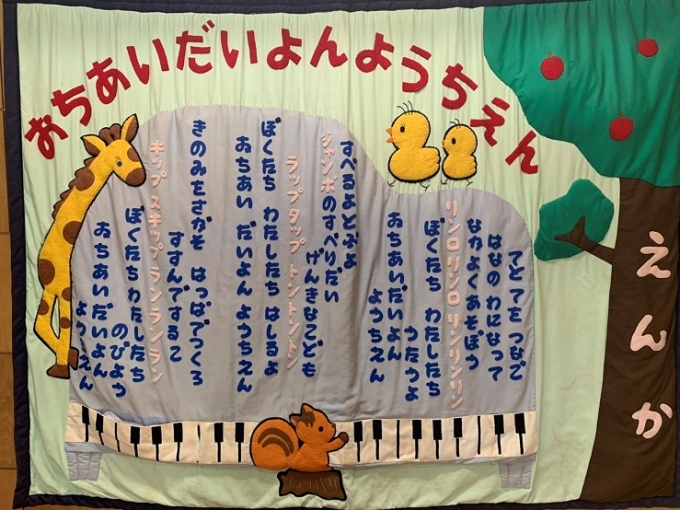 おちあいだいよんようちえん
えんか
てと てを つないで
はなの わになって
なかよくあそぼう
リンロリンロ リンリンリン
ぼくたち わたしたち
うたうよ
おちあいだいよん
ようちえん
すべるよとぶよ
ジャンボのすべりだい
げんきなこども
ラップタップ トントントン
ぼくたち わたしたち はしるよ
おちあい だいよん ようちえん
きのみをさがそ はっぱでつくろ
すすんでする
キップ スキップ ランランラン
ぼくたち わたしたち
のびよう
おちあいだいよん
ようちえん